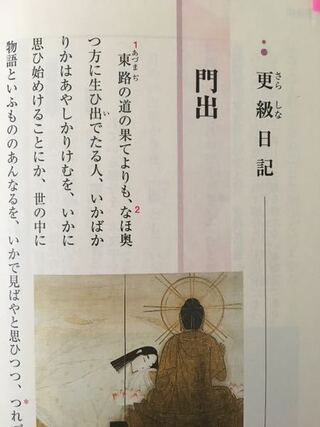 更級日記
さらしな
門出
1
東路の道の果てよりも、なほ奥
あづまぢ
2
つ方に生ひ出でたる人、いかばか
い
りかはあやしかりけむを、いかに
思ひ始めけることにか、世の中に
物語といふもののあんなるを、いかで見ばやと思ひつつ、つれ